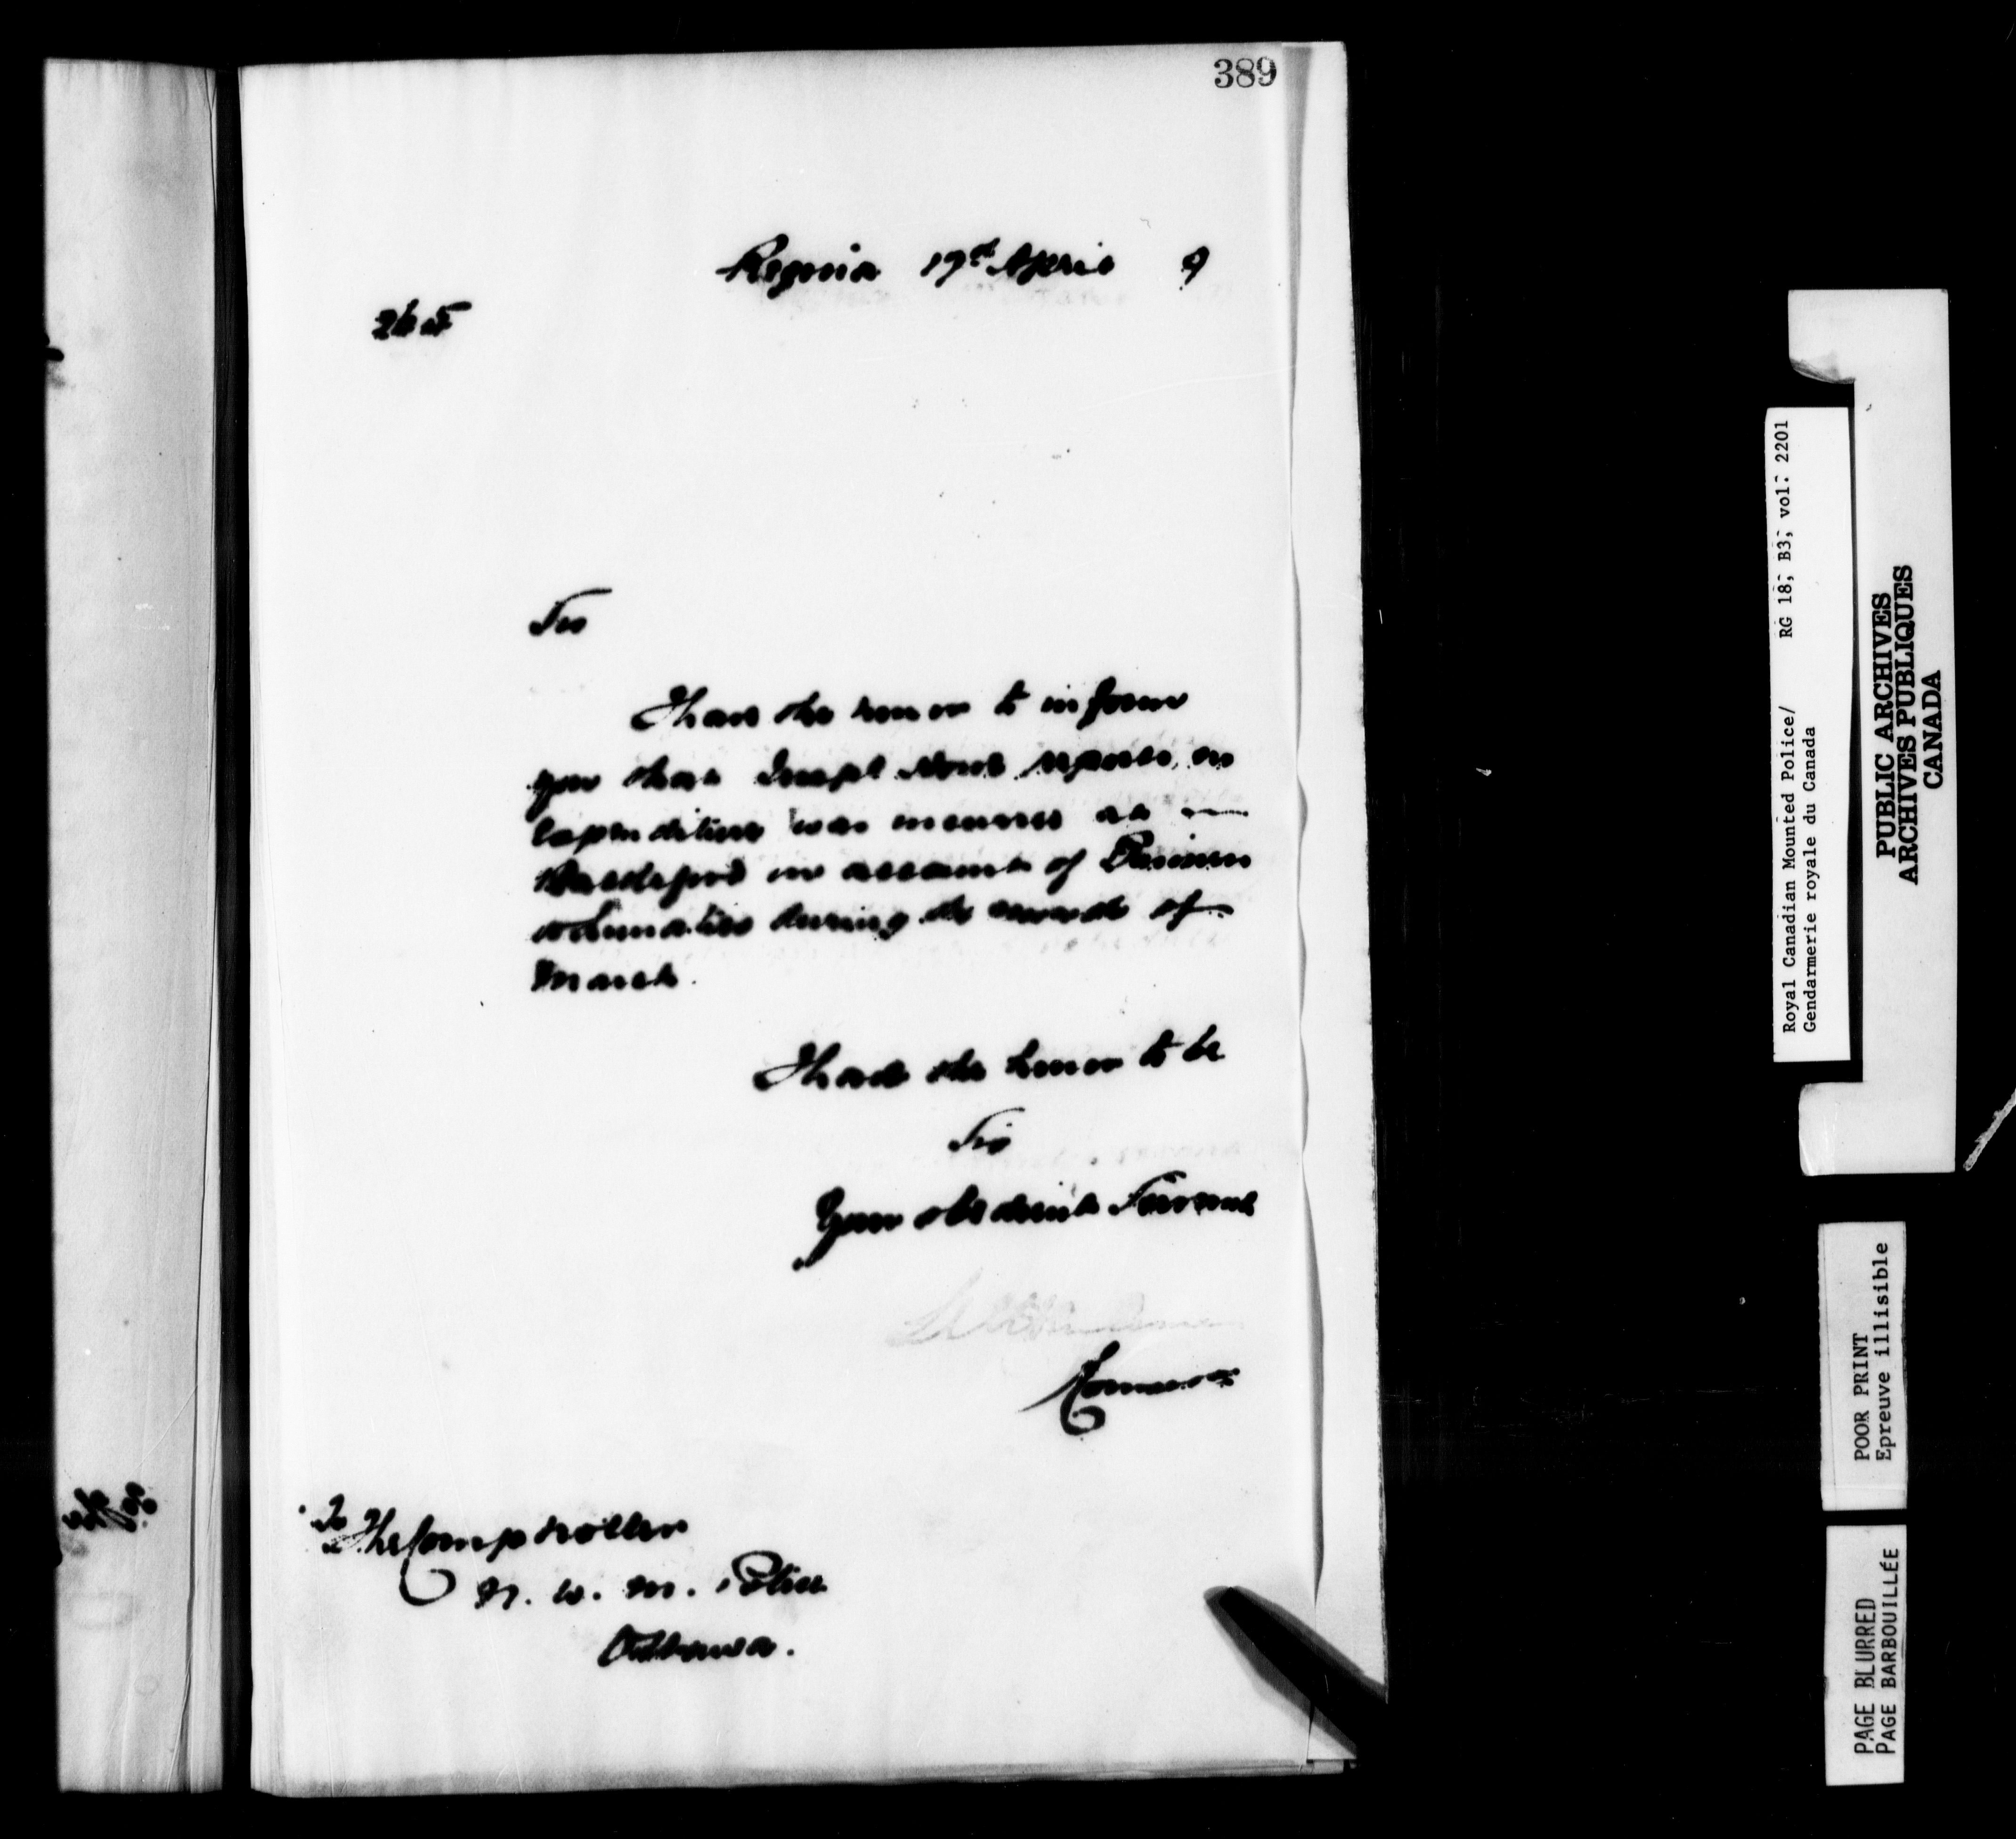 389
Regina 19th April 9
265
Sir
I have the honor to inform
you that Insept reports no
expenditure was incurred at
Battleford on account of Prison
during the month of
March.
I have the honor to be
Sir
Your obedient Servant
Commr
To
The Comptroller
N. W. M. Police
Ottawa.
Royal Canadian Mounted Police/ RG 18, B3, vol: 2201
Gendarmerie royale du Canada
PUBLIC ARCHIVES
ARCHIVES PUBLIQUES
CANADA
POOR PRINT
Epreuve illisible
PAGE BLURRED
PAGE BARBOUILLÉE